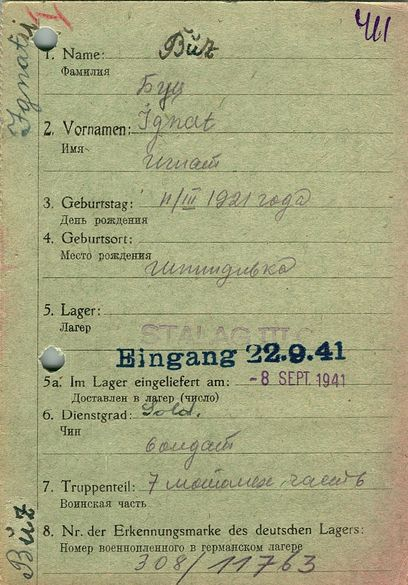 Ignatij
Ч11
1. Name: Büz
Фамилия
Буц
2. Vornamen: Ignat
Имя
Игнат
3. Geburtstag: 11/III 1921 года
День рождения
4. Geburtsort:
Место рождения
5. Lager:
Лагер
STALAG III C
Eingang 22.9.41
5a. Im Lager eingeliefert am: -8 SEPT. 1941
Доставлен в лагер (число)
6. Dienstgrad: Sold.
Чин
солдат
7. Truppenteil: 7 мотомех. часть
Воинская часть
Büz
8. Nr. der Erkennungsmarke des deutschen Lagers:
Номер военнопленного в германском лагере
308/11763